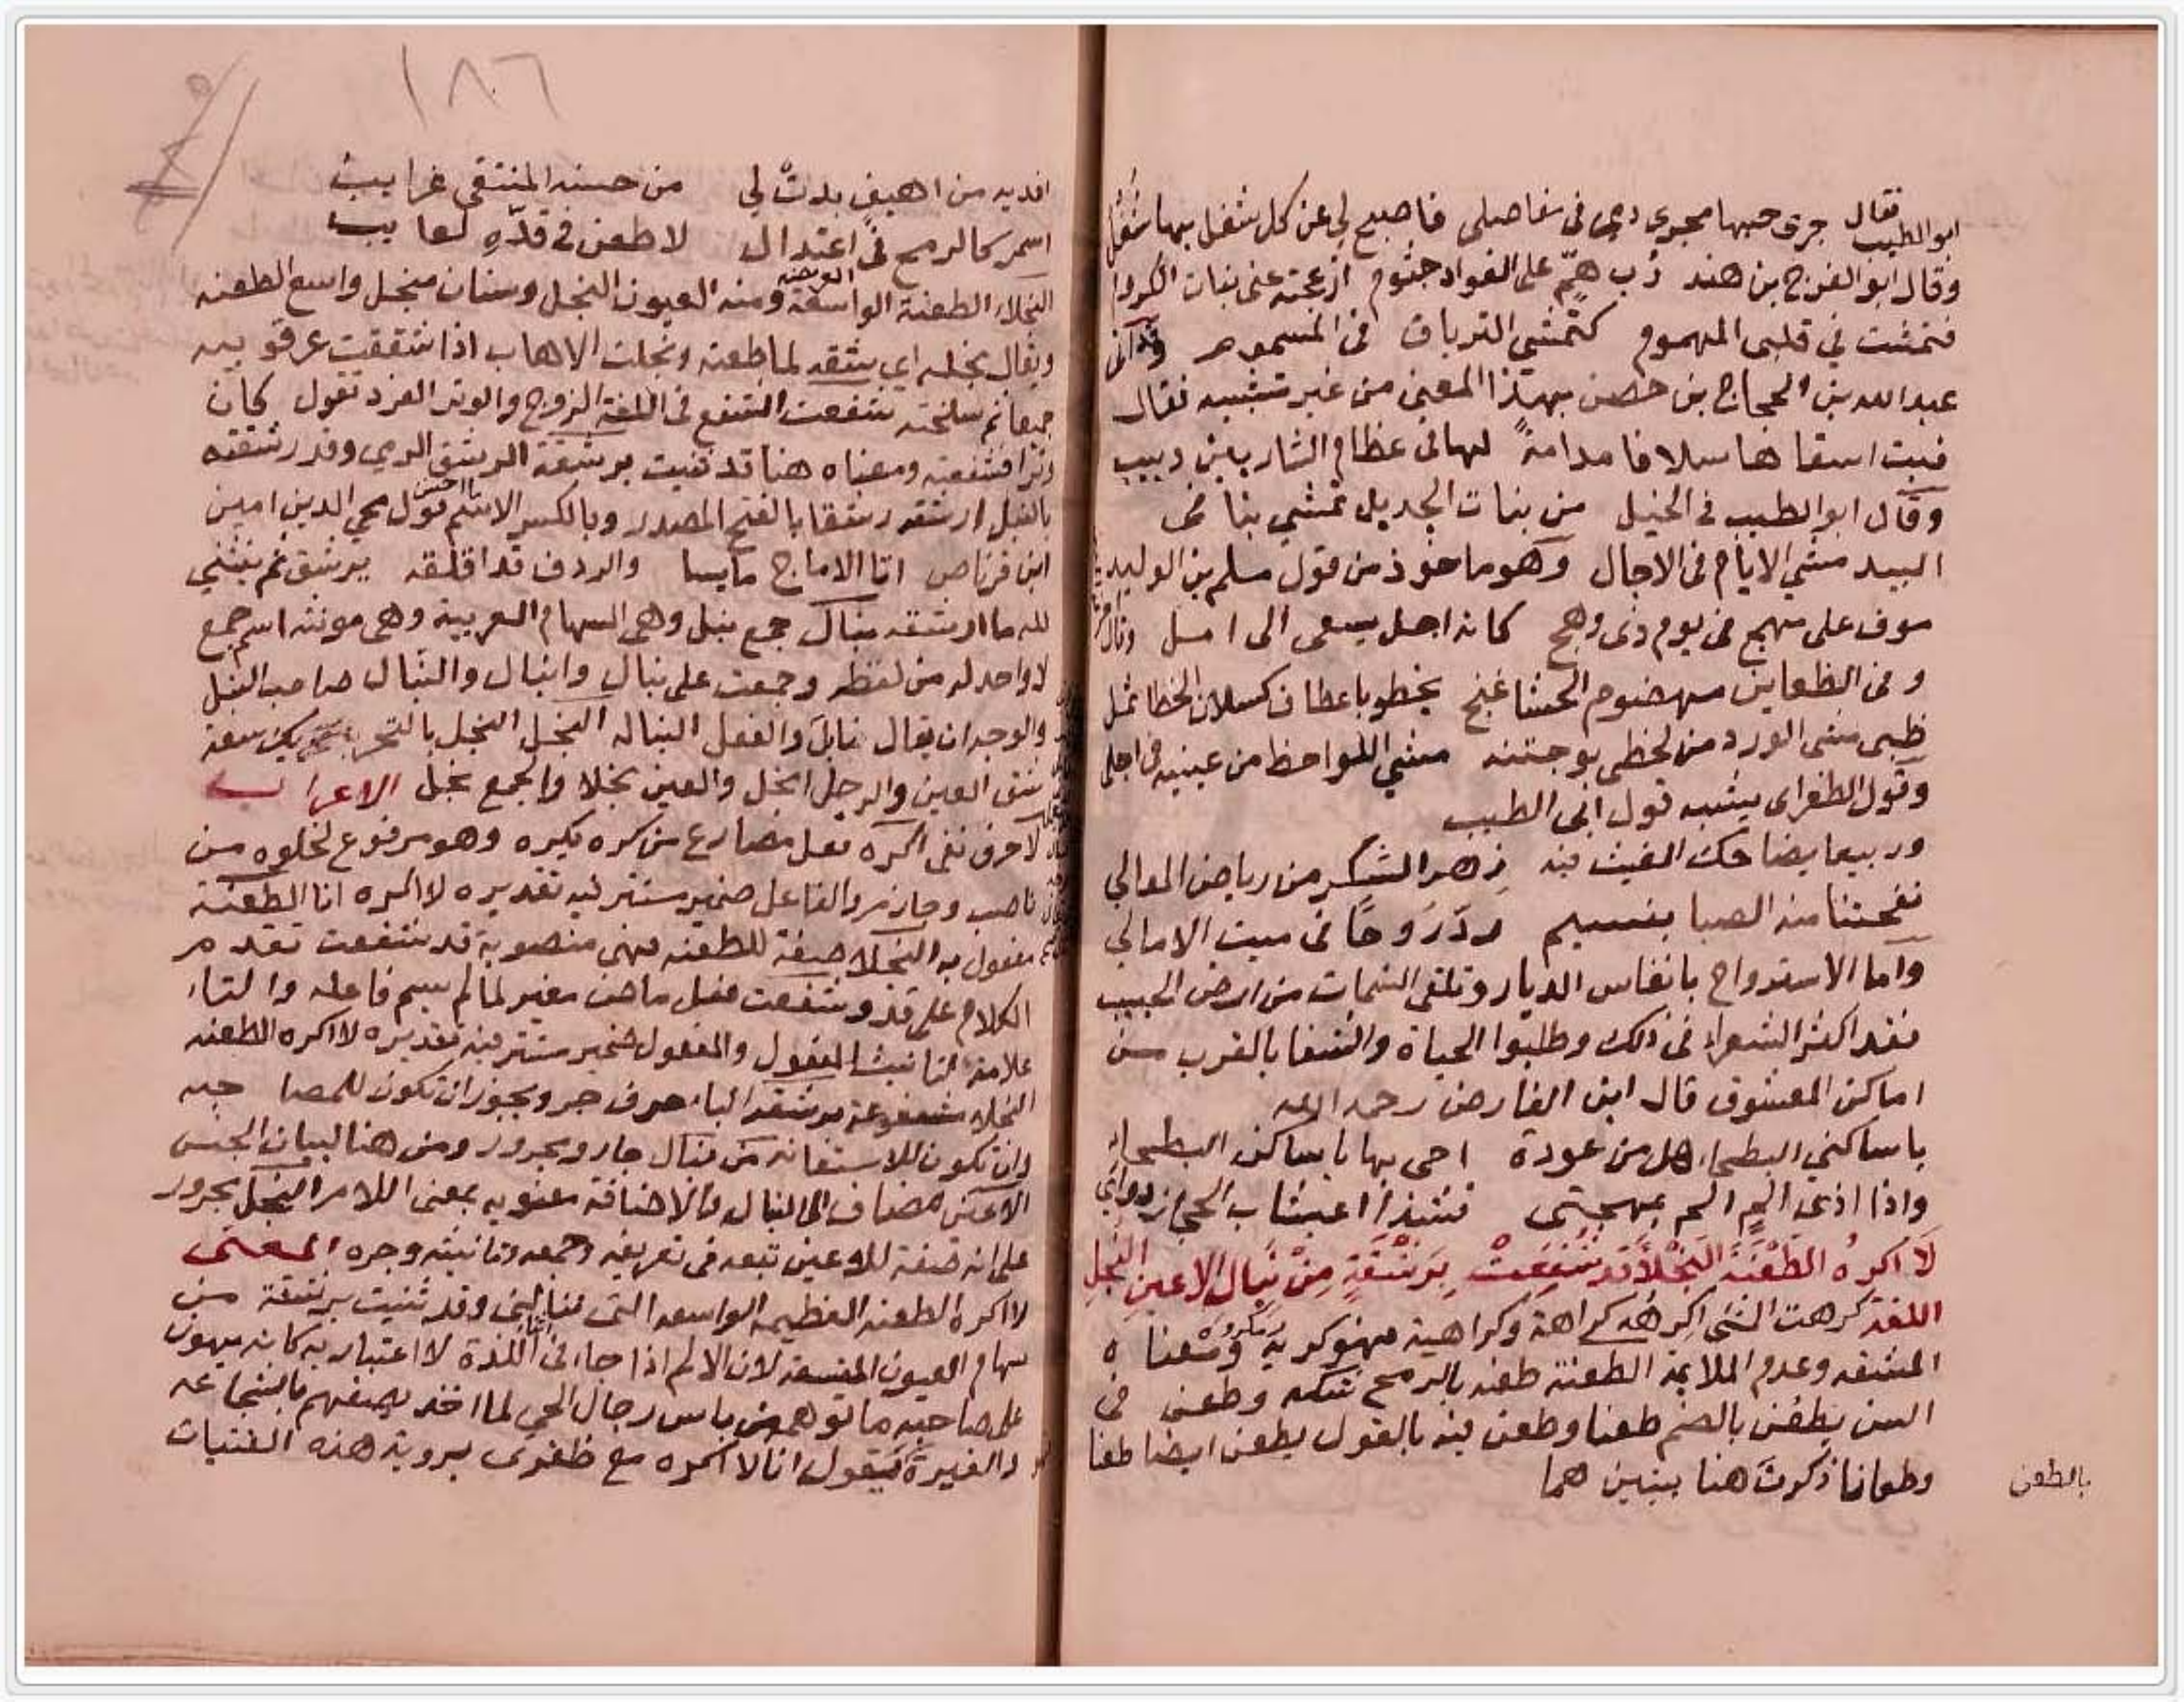 فقال
ابو الطيب جرى حبها مجرى دمي في مفاصلي فاصبح لي عن كل شغل بها شغل
وقال ابو الفرج بن هند رب همّ على الفواد جثوم ازعجته عني بنات الكروم
فتمشت في قلبي المهموم كتمشي الترياق في المسموم
عبد الله بن الحجاج بن حصن بهذا المعنى من غير تشبيه فقال
فبت اسقاها سلافا مدامةً لها في عظام الشاربين دبيب
وقال ابو الطيب في الخيل من بنات الجديل تمشي بنا في
البيد مشي الايام في الاجال وهو ماخوذ من قول مسلم بن الوليد
موف على مهج في يوم ذي وهج كانه اجل يسعى الى امل
وفي الظعاين مهضوم الحشا غنج يخطو باعطاف كسلان الخطا ثمل
ظبي مشى الورد من لحظي بوجنته مشي اللواحظ من عينيه في اجلي
وقول الطغراى يشبه قول ابي الطيب
وربيعا يضاحك الغيث فيه زهر الشكر من رياض المعالي
نفحتنا منه الصبا بنسيم ردّ رَوحًا في ميت الامالي
واما الاسترواح بانفاس الديار وتلقى النسمات من ارض الحبيب
فقد اكثر الشعراء في ذلك وطلبوا الحياة والشفا بالقرب من
اماكن المعشوق قال ابن الفارض رحمه الله
يا ساكني البطحاء هل من عودة احى بها يا ساكن البطحاء
واذا اذى الم الم بمهجتي فشذا اعيشاب الحجاز دواي
لَا اكرهُ الطَّعْنَةَ النَّجْلَآ قد شُفِعَتْ بِرَشْقَةٍ مِنْ نِبَال الاعين النُّجلِ
اللغة كرهت الشى اكرهه كراهة وكراهية فهو كريه ومكروه ومعناه
المشقة وعدم الملايمة الطعنة طعنه بالرمح شكه وطعن في
السن يطعن بالضم طعنا وطعن فيه بالقول يطعن ايضا طعنا
وطعانا ذكرت هنا بيتين هما
بالطعن
١٨٦
افديه من اهيف بدت لي من حسنه المنتقى غرايب
اسمر كالرمح في اعتدال لا طعن في قدّهِ لعايب
النجلاء الطعنة الواسعة ومنه العيون النجل وسنان منجل واسع الطعنة
ويقال نجله اي شقه لما طعنه ونجلت الاهاب اذا شققت عرقوبيه
جميعا ثم سلخته شفعت الشفع في اللغة الزوج والوتر الفرد تقول كان
وترا فشفعته ومعناه هنا قد ثنيت برشقة الرشق الرمي وقد رشقته
بالنبل ارشقه رشقا بالفتح المصدر وبالكسر الاسم ما احسن قول محي الدين امين
ابن قرناص اتا الاماج مايسا والردف قد اقلقه يرشق ثم ينثني
لله ما ارشقه نبال جمع نبل وهي السهام العربية وهي مونثه اسم جمع
لا واحد له من لفظه وجمعت على نبال وانبال والنبال صاحب النبل
والوجه ان يقال نابل والفعل النباله النجل النجل بالتحريك سعة
شق العين والرجل انجل والعين نجلا والجمع نجل الاعراب
لا حرف نفى اكره فعل مضارع من كره يكره وهو مرفوع لخلوه من
ناصب وجازم والفاعل ضمير مستتر فيه تقديره لا اكره انا الطعنة
مفعول به النجلا صفة للطعنه فهى منصوبة قد شفعت تقدم
الكلام على قد وشفعت فعل ماض مغير لما لم يسم فاعله والتاء
علامة لتانيث المفعول والمفعول ضمير مستتر فيه تقديره لا اكره الطعنه
النجلا مشفوعة برشقه الباء حرف جر ويجوز ان تكون للمصاحبه
وان تكون للاستعانة من نبال جار ومجرور ومن هنا لبيان الجنس
الاعين مضاف الى النبال والاضافة معنويه بمعنى اللام النجل مجرور
على انه صفة للاعين تبعه في تعريفه وجمعه وتانيثه وجره المعنى
لا اكره الطعنه العظيمه الواسعه التى تنالنى وقد ثنيت برشقة من
سهام العيون المتسعة لان الالم اذا جاء في اثنا اللذة لا اعتبار به كانه يهون
على صاحبه ما توهم من باس رجال الحي لما اخذ يصفهم بالشجاعه
والغيرة فيقول انا لا اكره مع ظفرى بروية هذه الفتيات